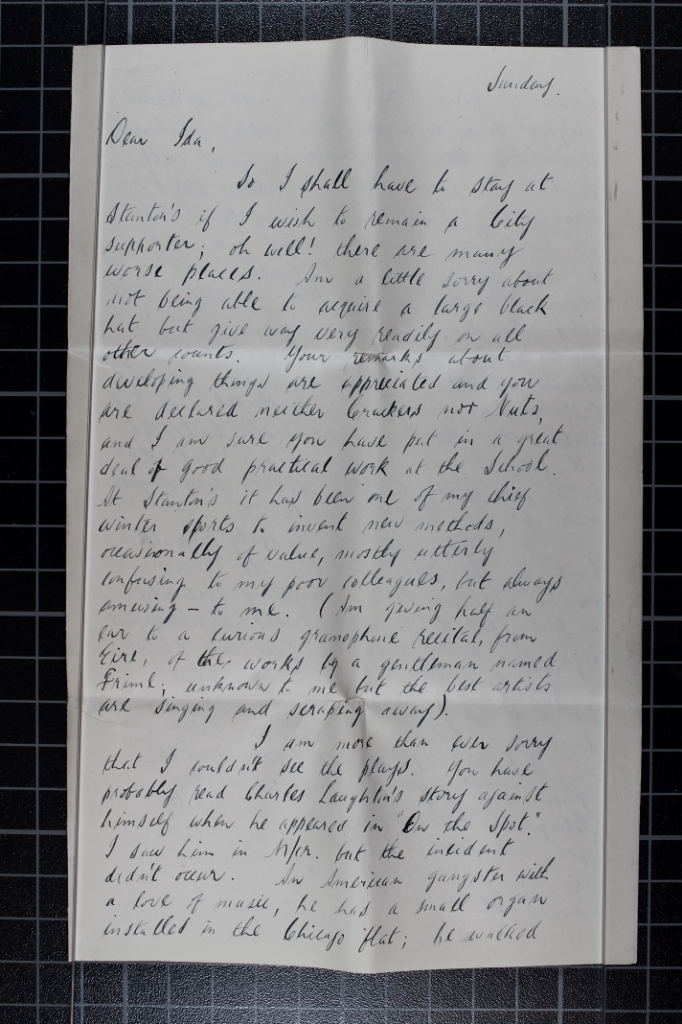 Sunday.
Dear Ida,
So I shall have to stay at
Stanton's if I wish to remain a City
supporter; oh well! there are many
worse places. Am a little sorry about
not being able to acquire a large black
hat but give way very readily on all
other counts. Your remarks about
developing things are appreciated and you
are declared neither Crackers nor Nuts,
and I am sure you have put in a great
deal of good practical work at the School.
At Stanton's it has been one of my chief
winter sports to invent new methods,
occasionally of value, mostly utterly
confusing to my poor colleagues, but always
amusing – to me. (Am giving half an
ear to a curious gramophone recital, from
Eire, of the works by a gentleman named
Friml; unknown to me but the best artists
are singing and scraping away).
I am more than ever sorry
that I couldn't see the plays. You have
probably read Charles Laughton's story against
himself when he appeared in "On the Spot."
I saw him in M/cr. but the incident
didn't occur. An American gangster with
a love of music, he has a small organ
installed in the Chicago flat; he walked